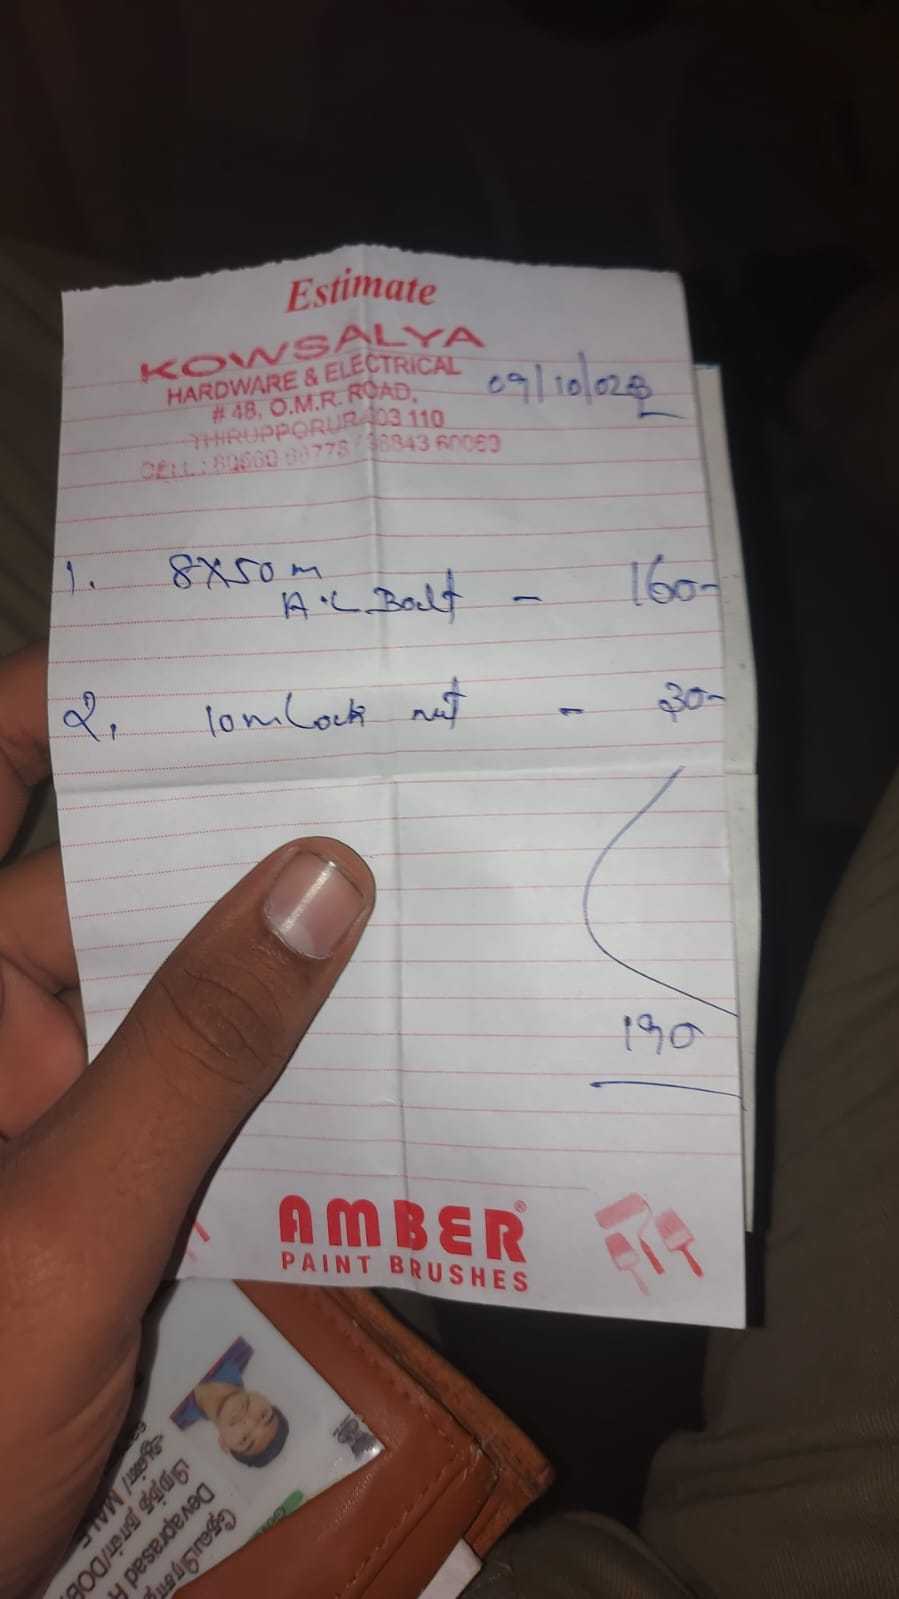 Estimate
KOWSALYA
HARDWARE & ELECTRICAL
# 48, O.M.R. ROAD,
THIRUPPORUR 603 110
09/10/023
1. 8X50m
A.C Bolt - 160-
2. 10m Lock nut - 30-
190
AMBER®
PAINT BRUSHES
Devaprasad
பிறந்த நாள்/DOB
ஆண்/ MALE